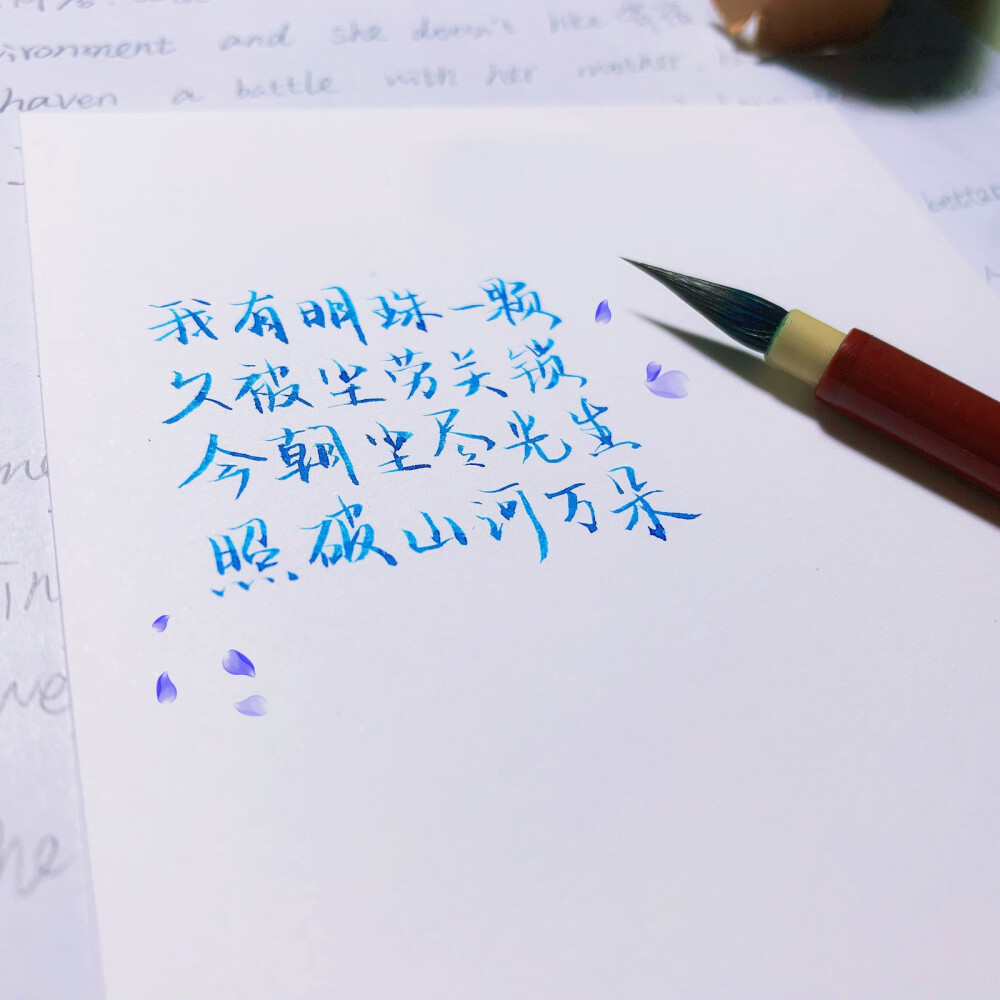 vironment and she doesn't like
haven a battle with her mother,
我有明珠一颗
久被尘劳关锁
今朝尘尽光生
照破山河万朵